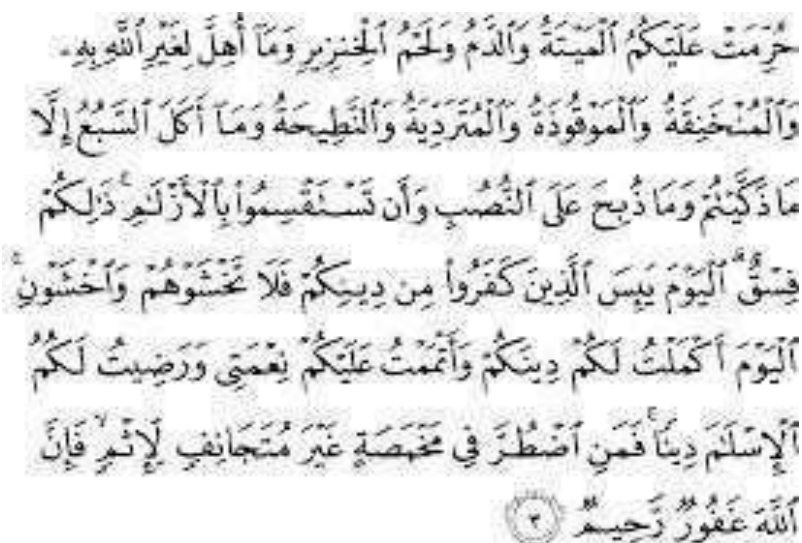 حُرِّمَتْ عَلَيْكُمُ ٱلْمَيْتَةُ وَٱلدَّمُ وَلَحْمُ ٱلْخِنزِيرِ وَمَآ أُهِلَّ لِغَيْرِ ٱللَّهِ بِهِۦ
وَٱلْمُنْخَنِقَةُ وَٱلْمَوْقُوذَةُ وَٱلْمُتَرَدِّيَةُ وَٱلنَّطِيحَةُ وَمَآ أَكَلَ ٱلسَّبُعُ إِلَّا
مَا ذَكَّيْتُمْ وَمَا ذُبِحَ عَلَى ٱلنُّصُبِ وَأَن تَسْتَقْسِمُوا۟ بِٱلْأَزْلَٰمِ ۚ ذَٰلِكُمْ
فِسْقٌ ۗ ٱلْيَوْمَ يَئِسَ ٱلَّذِينَ كَفَرُوا۟ مِن دِينِكُمْ فَلَا تَخْشَوْهُمْ وَٱخْشَوْنِ ۚ
ٱلْيَوْمَ أَكْمَلْتُ لَكُمْ دِينَكُمْ وَأَتْمَمْتُ عَلَيْكُمْ نِعْمَتِى وَرَضِيتُ لَكُمُ
ٱلْإِسْلَٰمَ دِينًا ۚ فَمَنِ ٱضْطُرَّ فِى مَخْمَصَةٍ غَيْرَ مُتَجَانِفٍ لِّإِثْمٍ ۙ فَإِنَّ
ٱللَّهَ غَفُورٌ رَّحِيمٌ ٣